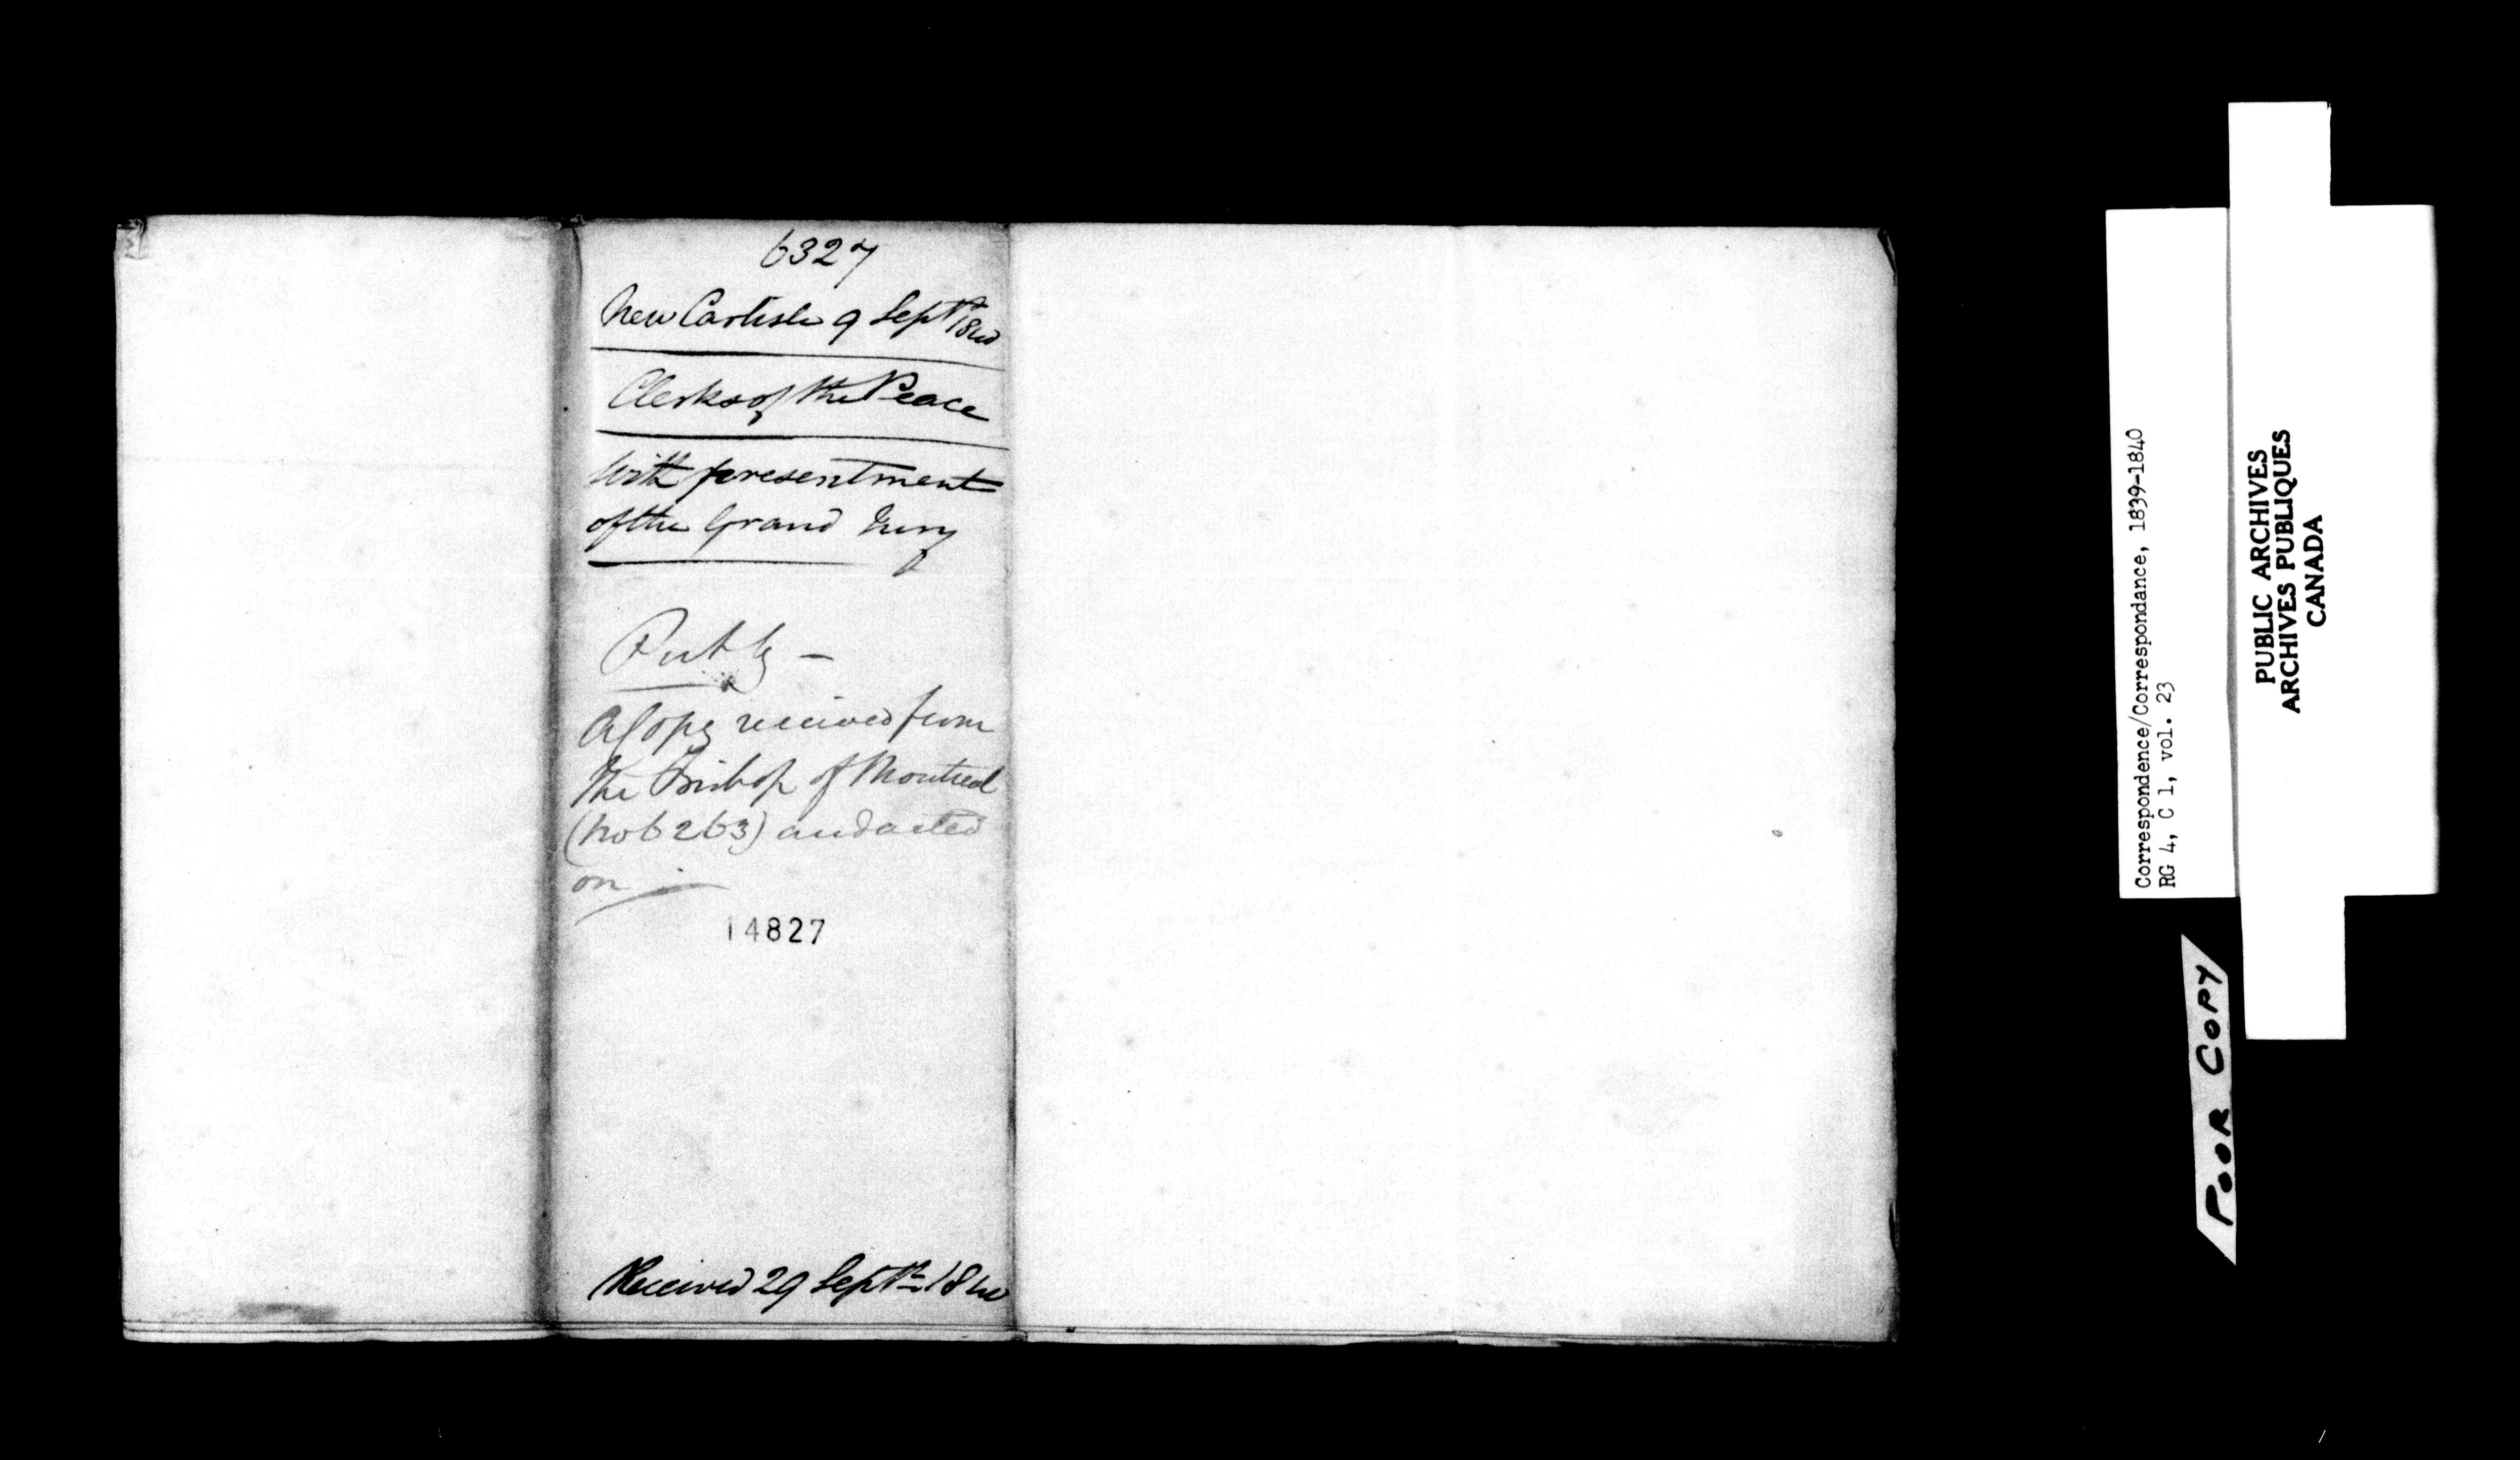 6327
New Carlisle 9 Septr 1840
Clerks of the Peace
With presentment
of the Grand Jury
Put by —
A Copy received from
the Bishop of Montreal
(No 6263) and acted
on
14827
Received 29 Septr 1840
Correspondence/Correspondance, 1839-1840
RG 4, C 1, vol. 23
PUBLIC ARCHIVES
ARCHIVES PUBLIQUES
CANADA
POOR COPY